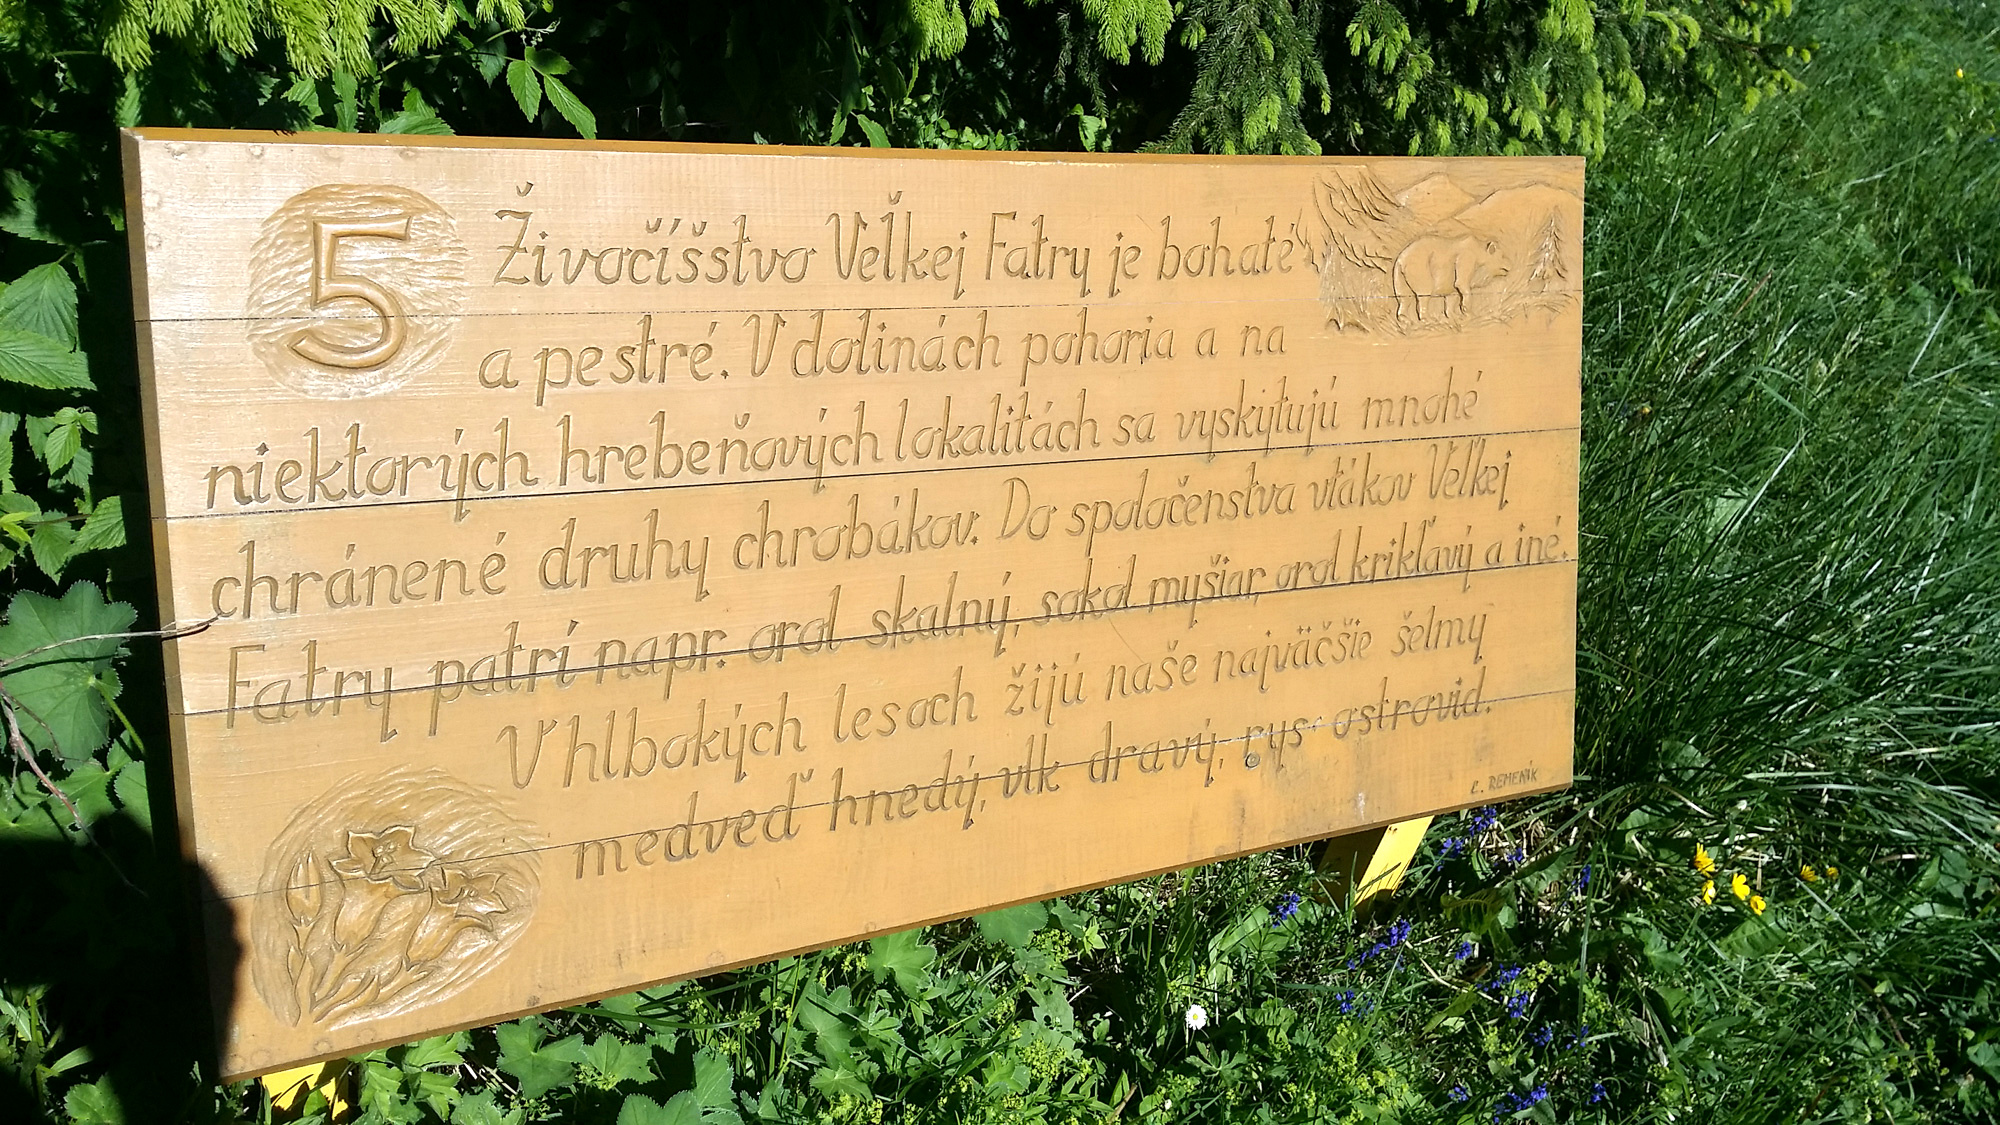 5
Živočíšstvo Veľkej Fatry je bohaté
a pestré. V dolinách pohoria a na
niektorých hrebeňových lokalitách sa vyskytujú mnohé
chránené druhy chrobákov. Do spoločenstva vtákov Veľkej
Fatry patrí napr. orol skalný, sokol myšiar, orol krikľavý a iné.
V hlbokých lesoch žijú naše najväčšie šelmy
medveď hnedý, vlk dravý, rys ostrovid.
Ľ. REMENÍK